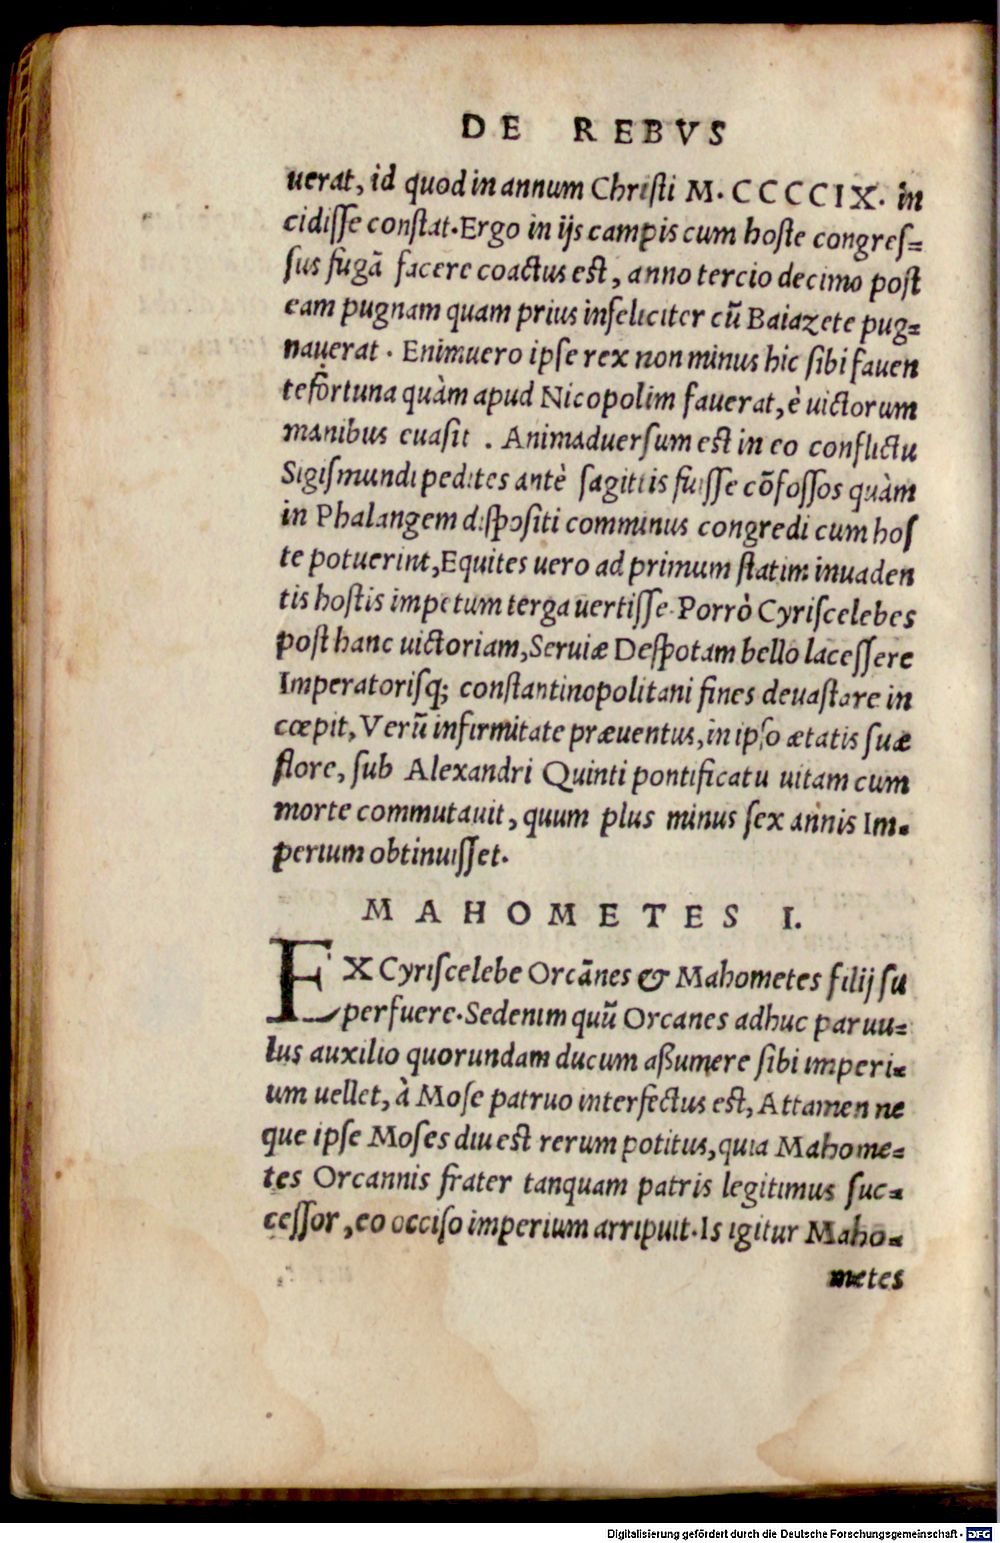 DE REBVS
uerat, id quod in annum Christi M. CCCCIX. in
cidisse constat. Ergo in ijs campis cum hoste congres=
sus fugã facere coactus est, anno tercio decimo post
eam pugnam quam prius infeliciter cũ Baiazete pug=
nauerat. Enimuero ipse rex non minus hic sibi fauen
te fortuna quàm apud Nicopolim fauerat, è uictorum
manibus euasit. Animaduersum est in eo conflictu
Sigismundi pedites antè sagittis fuisse cõfossos quàm
in Phalangem dispositi comminus congredi cum hos
te potuerint, Equites uero ad primum statim inuaden
tis hostis impetum terga uertisse. Porrò Cyriscelebes
post hanc uictoriam, Seruiæ Despotam bello lacessere
Imperatorisq; constantinopolitani fines deuastare in
cœpit, Verũ infirmitate præuentus, in ipso ætatis suæ
flore, sub Alexandri Quinti pontificatu uitam cum
morte commutauit, quum plus minus sex annis Im=
perium obtinuisset.
MAHOMETES I.
EX Cyriscelebe Orcãnes & Mahometes filij su
perfuere. Sed enim quũ Orcanes adhuc paruu=
lus auxilio quorundam ducum aßumere sibi imperi=
um uellet, à Mose patruo interfectus est, Attamen ne
que ipse Moses diu est rerum potitus, quia Mahome=
tes Orcannis frater tanquam patris legitimus suc=
cessor, eo occiso imperium arripuit. Is igitur Maho=
metes
Digitalisierung gefördert durch die Deutsche Forschungsgemeinschaft - DFG